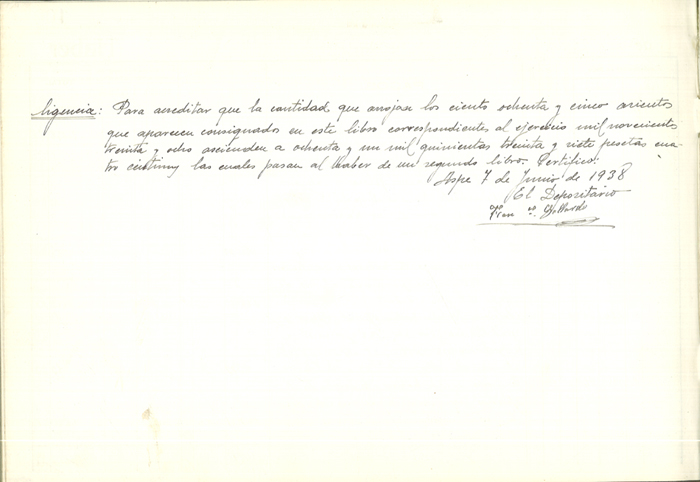 ligencia: Para acreditar que la cantidad que arrojan los ciento ochenta y cinco asientos
que aparecen consignados en este libro correspondientes al ejercicio mil novecientos
treinta y ocho ascienden a ochenta y un mil quinientas treinta y siete pesetas cua-
tro centimos las cuales pasan al Haber de un segundo libro. Certifico:
Aspe 7 de Junio de 1938
El Depositario